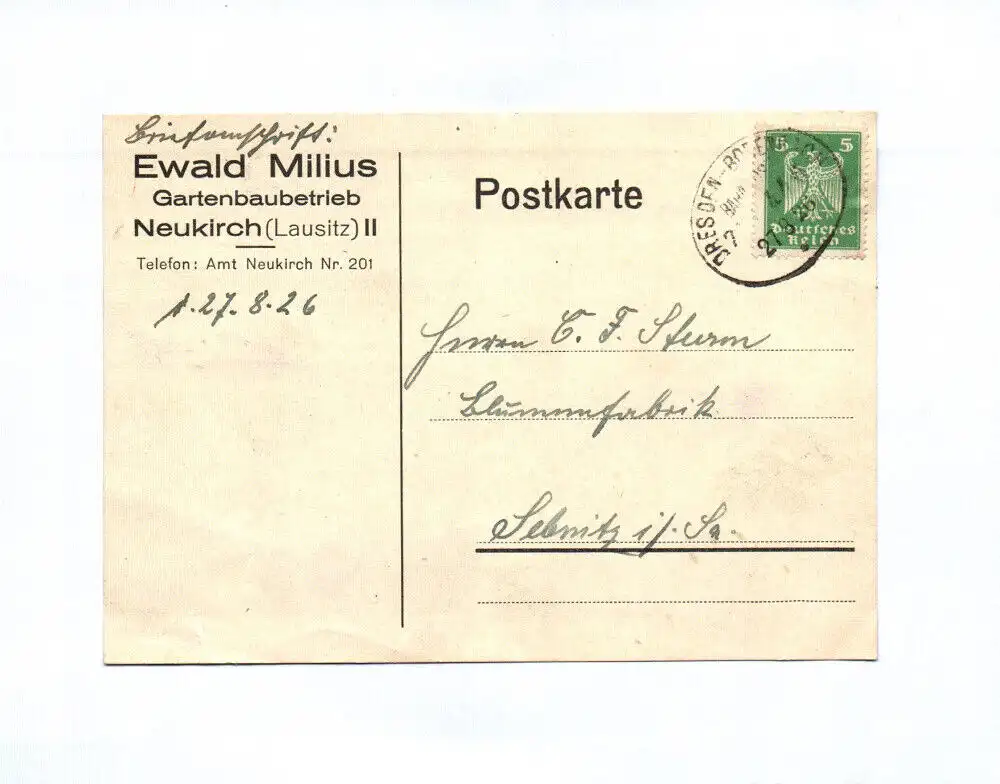 Briefanschrift:
Ewald Milius
Gartenbaubetrieb
Neukirch (Lausitz) II
Telefon: Amt Neukirch Nr. 201
27. 8. 26
Postkarte
5 5
Deutsches
Reich
DRESDEN
27 8 26
Herrn C. F. Sturm
Blumenfabrik
Sebnitz i/. Sa.